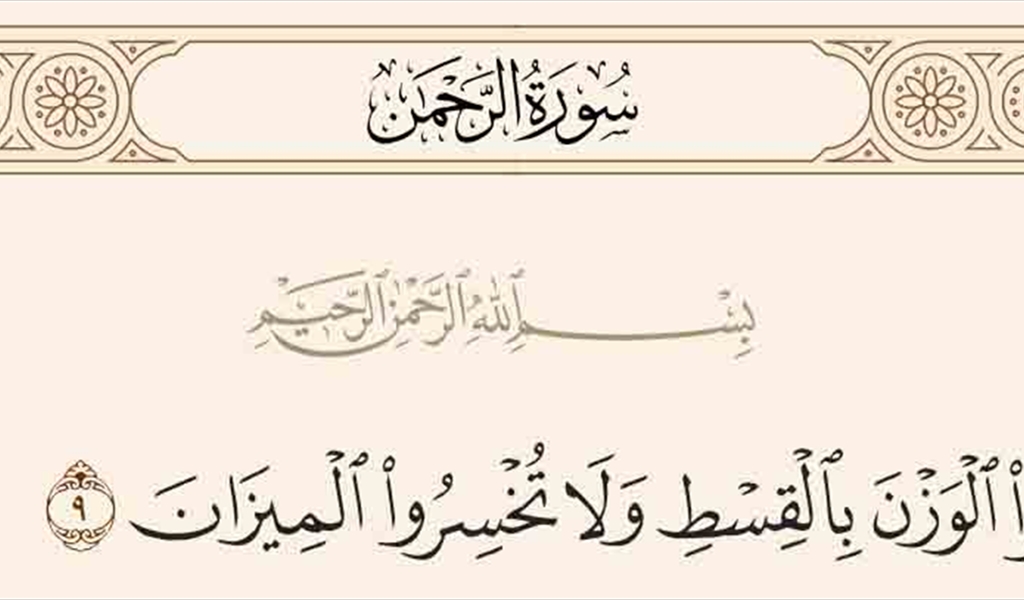 سُورَةُ الرَّحْمَٰن
بِسْمِ ٱللَّهِ ٱلرَّحْمَٰنِ ٱلرَّحِيمِ
ٱلْوَزْنَ بِٱلْقِسْطِ وَلَا تُخْسِرُوا۟ ٱلْمِيزَانَ ٩